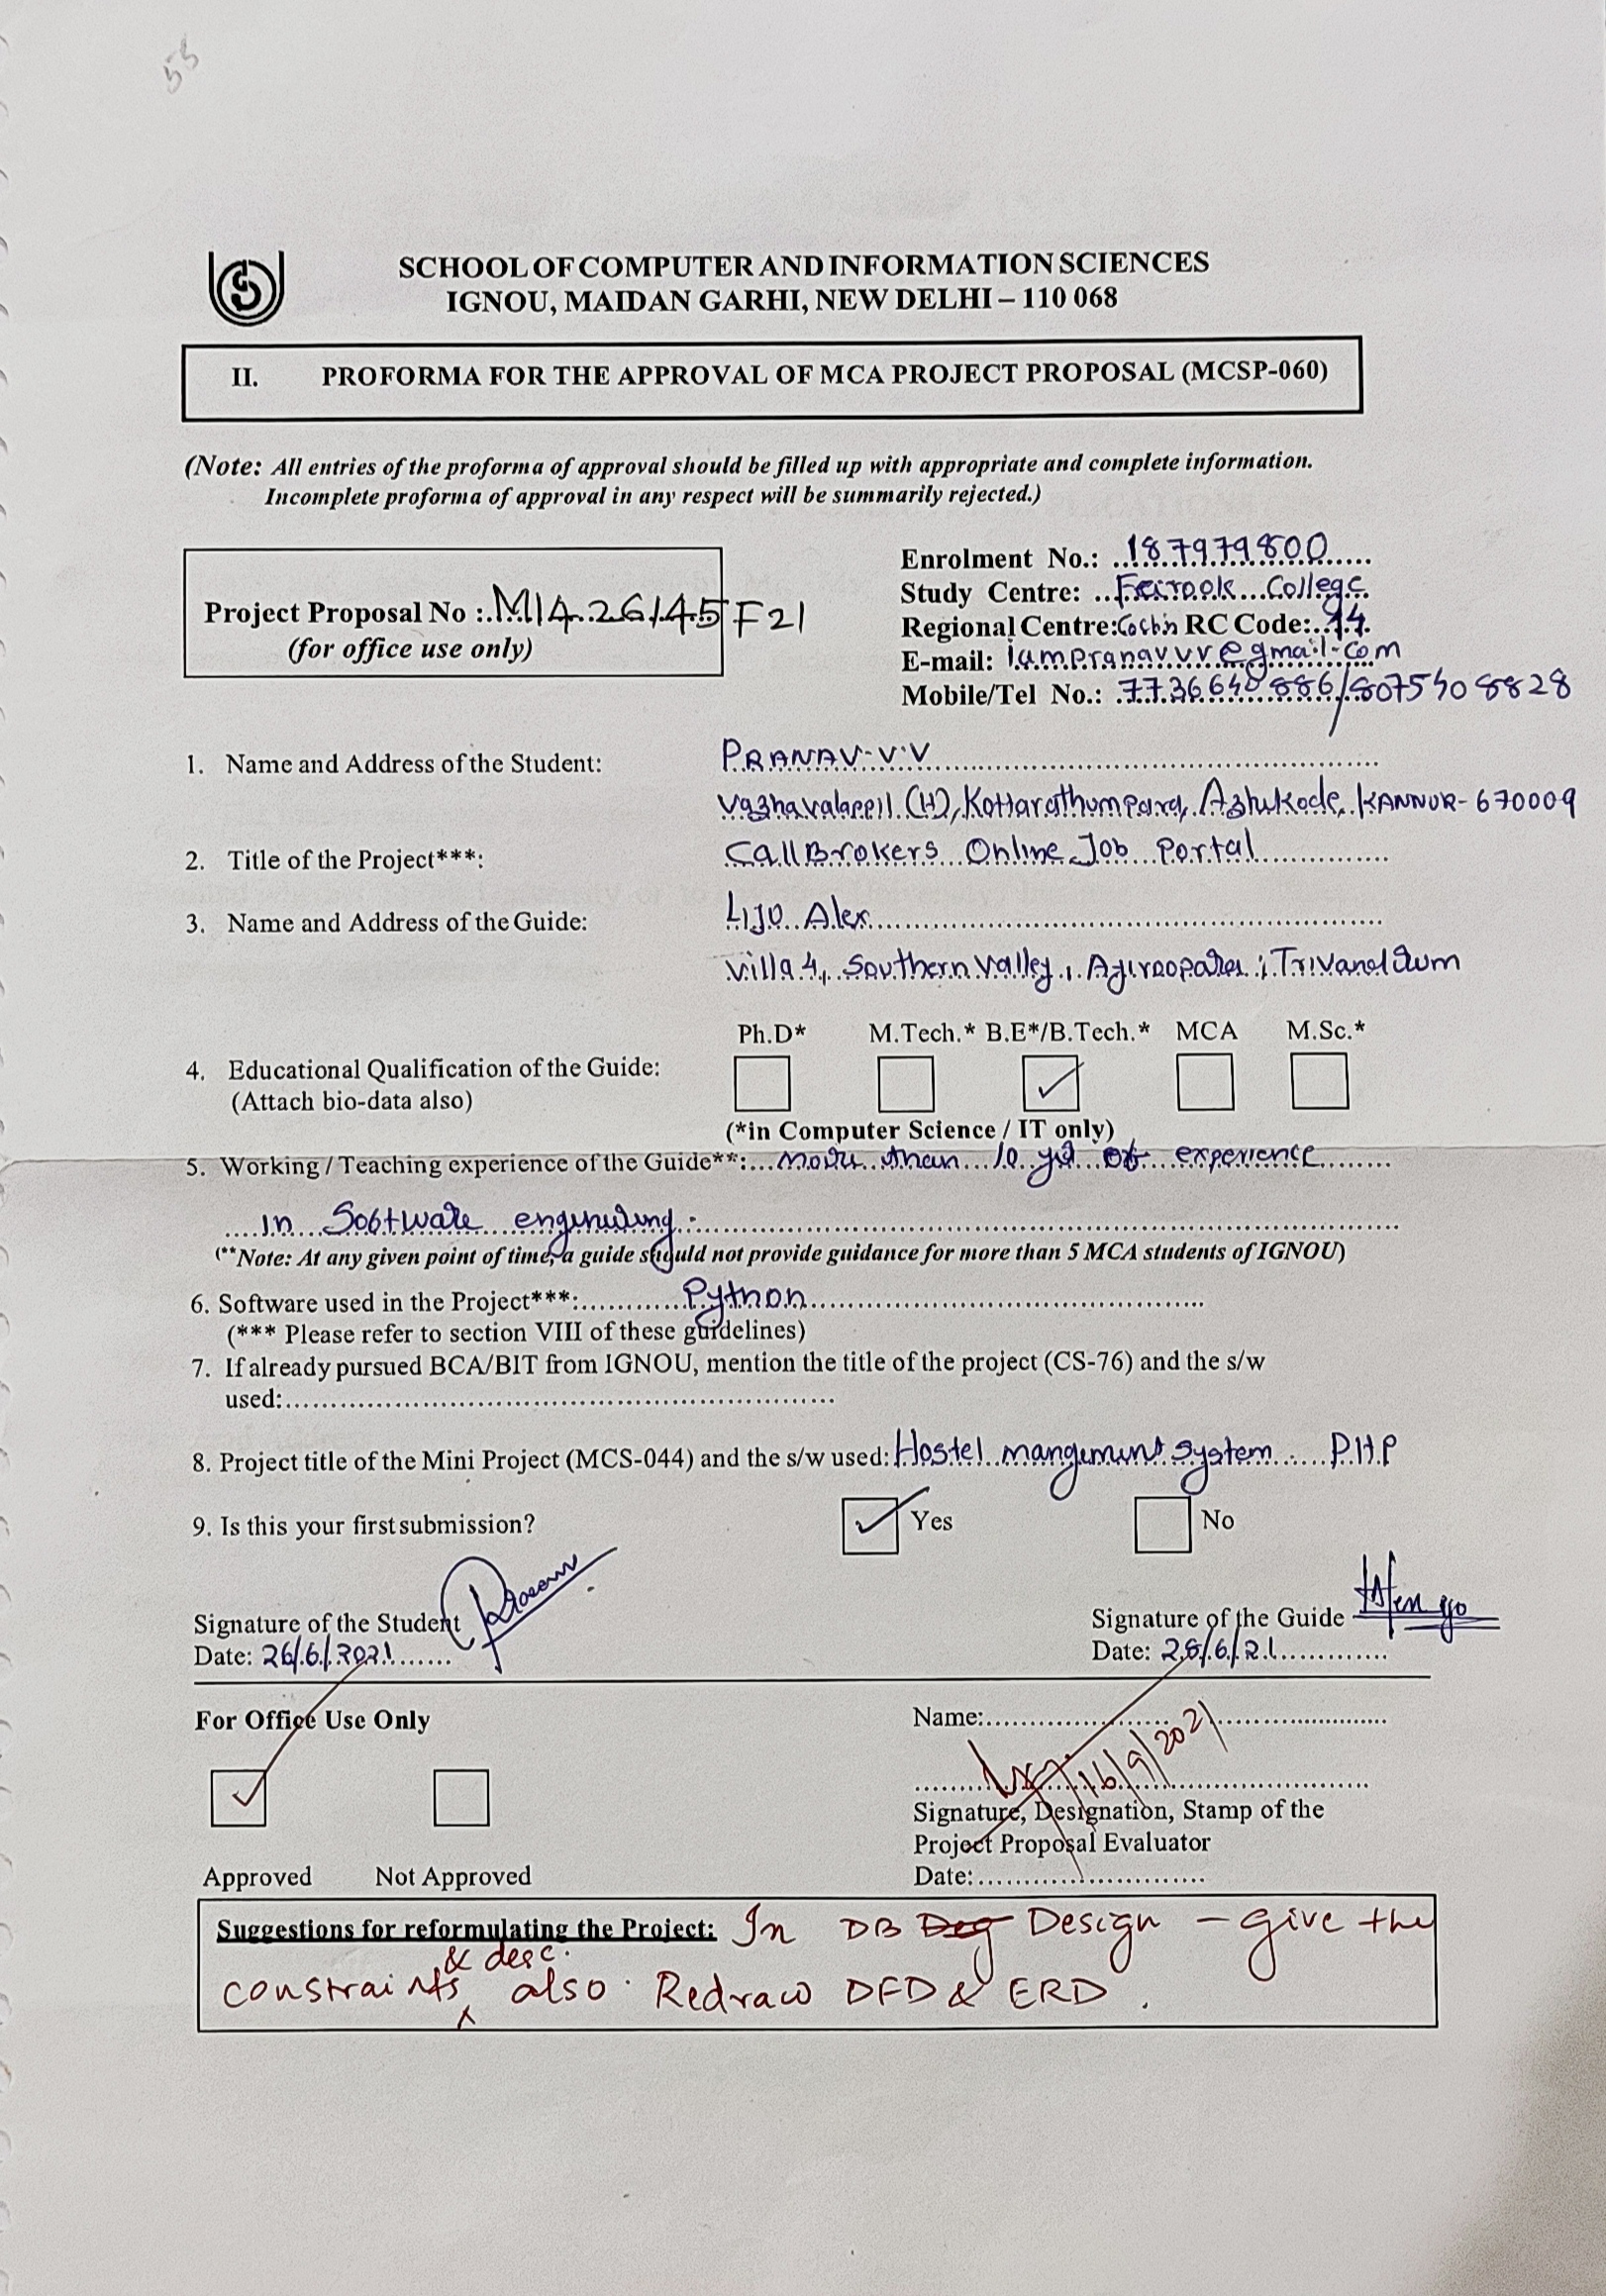 55
SCHOOL OF COMPUTER AND INFORMATION SCIENCES
IGNOU, MAIDAN GARHI, NEW DELHI – 110 068
II. PROFORMA FOR THE APPROVAL OF MCA PROJECT PROPOSAL (MCSP-060)
(Note: All entries of the proforma of approval should be filled up with appropriate and complete information.
Incomplete proforma of approval in any respect will be summarily rejected.)
Project Proposal No :. M1426145F21
(for office use only)
Enrolment No.: 187979800
Study Centre: Farook College
Regional Centre: Cochin RC Code: 14
E-mail: iampranavvv@gmail.com
Mobile/Tel No.: 7736640886/8075408828
1. Name and Address of the Student: PRANAV.V.V
Vazhavalappil (H), Kottarathumpara, Azhikode, KANNUR-670009
2. Title of the Project***: CallBrokers Online Job Portal
3. Name and Address of the Guide: Lijo Alex
Villa 4, Southern Valley, Trivandrum
Ph.D* M.Tech.* B.E*/B.Tech.* MCA M.Sc.*
4. Educational Qualification of the Guide:
(Attach bio-data also)
(*in Computer Science / IT only)
5. Working / Teaching experience of the Guide**: more than 10 yrs of experience
in Software engineering.
(**Note: At any given point of time, a guide should not provide guidance for more than 5 MCA students of IGNOU)
6. Software used in the Project***: Python
(*** Please refer to section VIII of these guidelines)
7. If already pursued BCA/BIT from IGNOU, mention the title of the project (CS-76) and the s/w
used:
8. Project title of the Mini Project (MCS-044) and the s/w used: Hostel mangement system PHP
9. Is this your first submission? Yes No
Signature of the Student
Date: 26/6/2021
Signature of the Guide
Date: 26/6/21
For Office Use Only
Name:
16/9/2021
Signature, Designation, Stamp of the
Project Proposal Evaluator
Date:
Approved Not Approved
Suggestions for reformulating the Project: In DB Design – give the
constraints & desc. also. Redraw DFD & ERD.